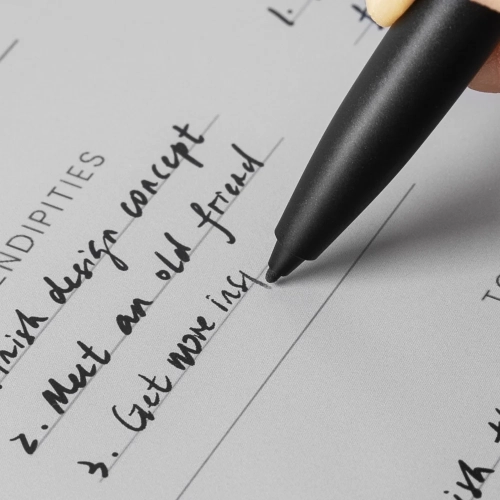 1.
ENDIPITIES
nish design concept
2. Meet an old friend
3. Get more insp
TO
ish